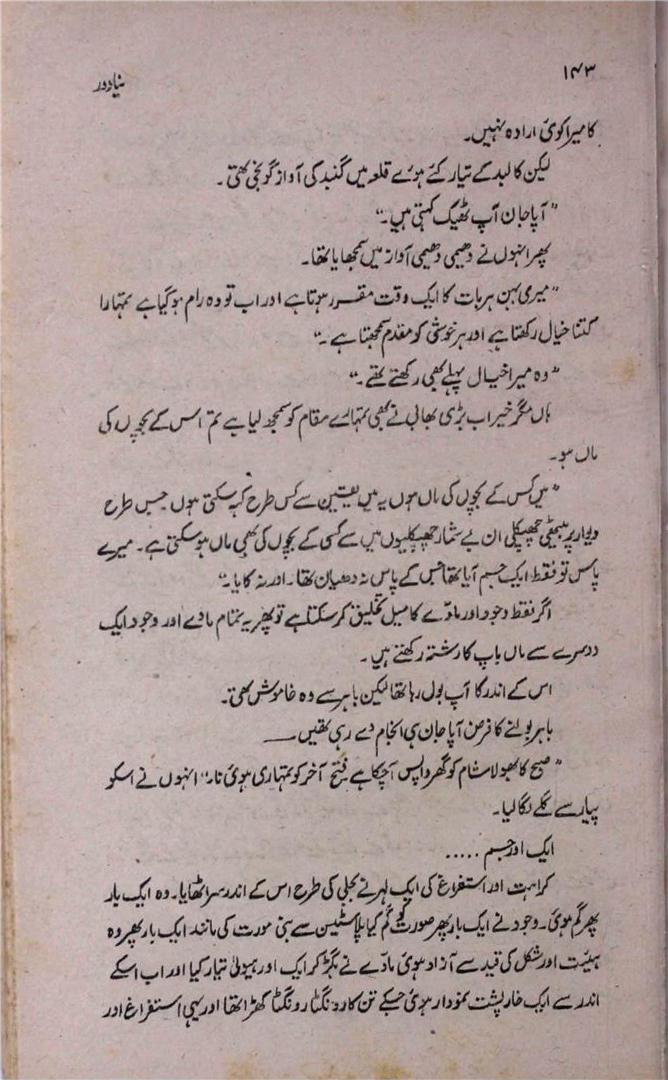 ۱۴۳
نیا دور
کا میرا کوئی ارادہ نہیں۔
لیکن کالبد کے تیار کئے ہوئے قلعہ میں گنبد کی آواز گونجی تھی۔
"آپا جان آپ ٹھیک کہتی ہیں۔"
پھر انہوں نے دھیمی دھیمی آواز میں سمجھایا تھا۔
"میری بہن ہر بات کا ایک وقت مقرر ہوتا ہے اور اب تو وہ رام ہو گیا ہے تمہارا
کتنا خیال رکھتا ہے اور ہر خوشی کو مقدم سمجھتا ہے۔"
"وہ میرا خیال پہلے بھی رکھتے تھے۔"
ہاں مگر خیر اب بڑی بھابی نے بھی تمہارے مقام کو سمجھ لیا ہے تم اس کے بچوں کی
ماں ہو۔
"میں کس کے بچوں کی ماں ہوں یہ میں یقین سے کس طرح کہہ سکتی ہوں جس طرح
دیوار پر بیٹھی چھپکلی ان بے شمار چھپکلیوں میں سے کسی کے بچوں کی بھی ماں ہو سکتی ہے۔ میرے
پاس تو فقط ایک جسم آیا تھا جس کے پاس نہ دھیان تھا۔ اور نہ کایا۔"
اگر فقط وجود اور مادّے کا میل تخلیق کر سکتا ہے تو پھر یہ تمام مادے اور وجود ایک
دوسرے سے ماں باپ کا رشتہ رکھتے ہیں۔
اس کے اندر کا آپ بول رہا تھا لیکن باہر سے وہ خاموش تھی۔
باہر بولنے کا فرض آپا جان ہی انجام دے رہی تھیں۔
"صبح کا بھولا شام کو گھر واپس آ چکا ہے فتح آخر کو تمہاری ہوئی نا۔" انہوں نے اسکو
پیار سے گلے لگا لیا۔
ایک اور جسم .....
کراہت اور استفراغ کی ایک لہر نے بجلی کی طرح اس کے اندر سر اٹھایا۔ وہ ایک بار
پھر گم ہوئی۔ وجود نے ایک بار پھر صورت کو گم کیا پلاسٹیسن سے بنی مورت کی مانند ایک بار پھر وہ
ہیئت اور شکل کی قید سے آزاد ہوئی مادّے نے بگڑ کر ایک اور ہیولیٰ تیار کیا اور اب اسکے
اندر سے ایک خارپشت نمودار ہوئی جسکے تن کا رونگٹا رونگٹا کھڑا تھا اور یہی استفراغ اور